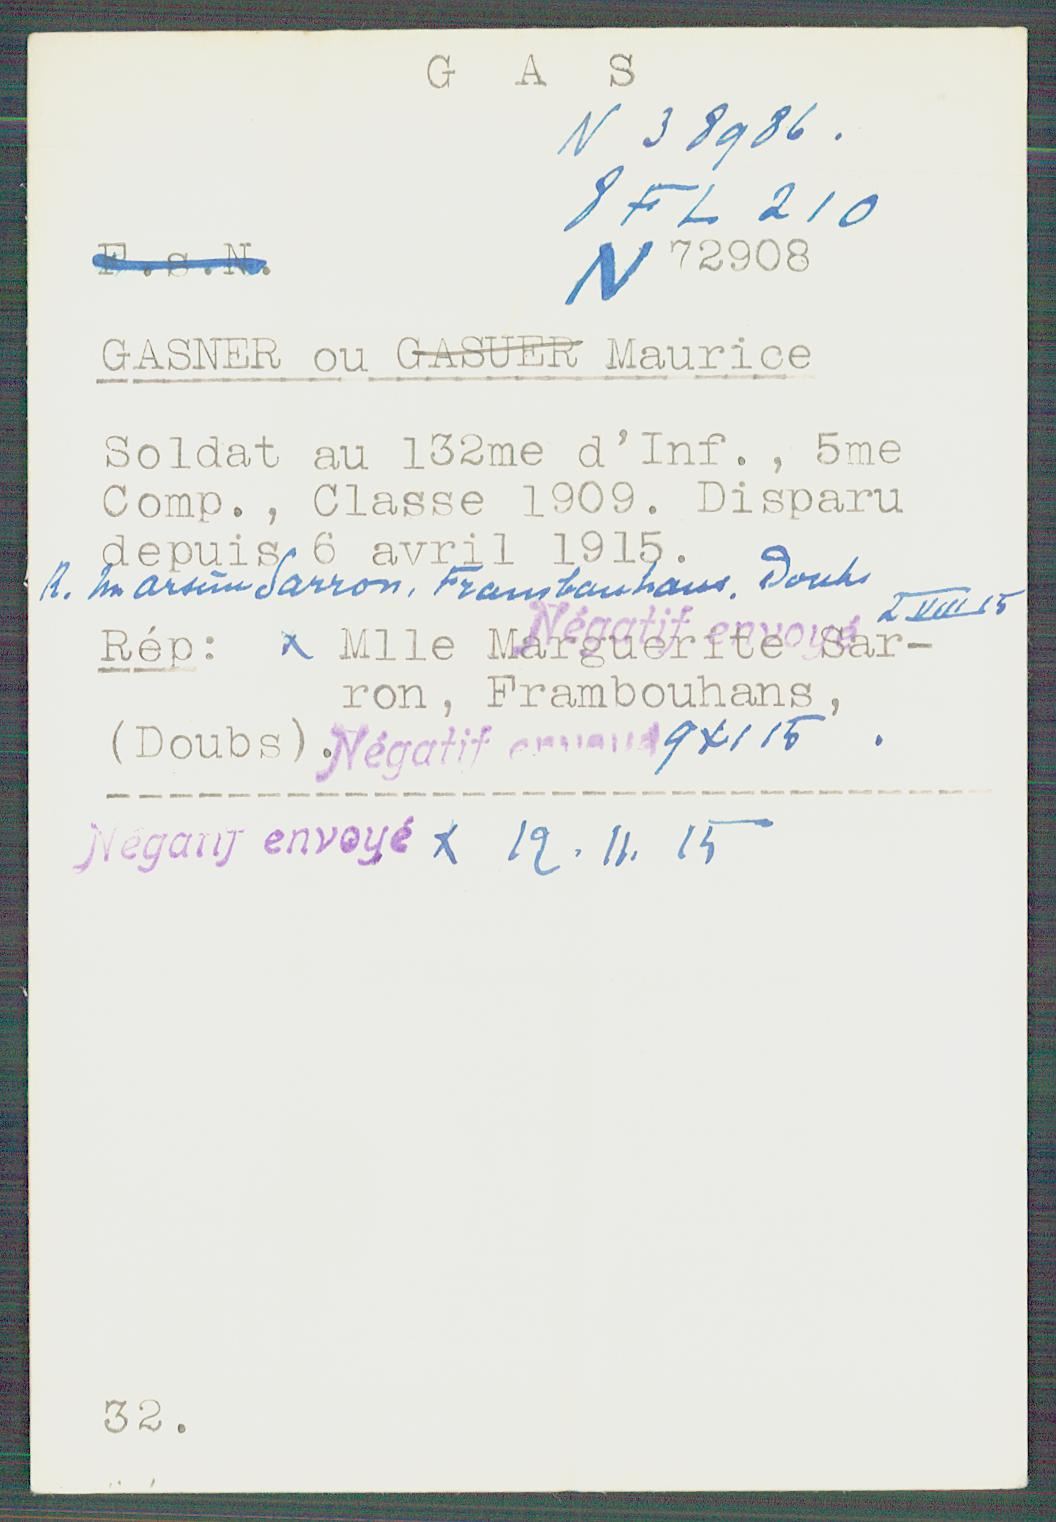 G A S
N 38986.
8 FL 210
F.s.N.
N 72908
GASNER ou GASUER Maurice
Soldat au 132me d'Inf., 5me
Comp., Classe 1909. Disparu
depuis 6 avril 1915.
R. Sarron, Frambouhans, Doubs
2 VIII 15
Négatif envoyé
Rép: x Mlle Marguerite Sar-
ron, Frambouhans,
(Doubs). Négatif envoyé 9 XI 15 .
Négatif envoyé x 12.11.15
32.